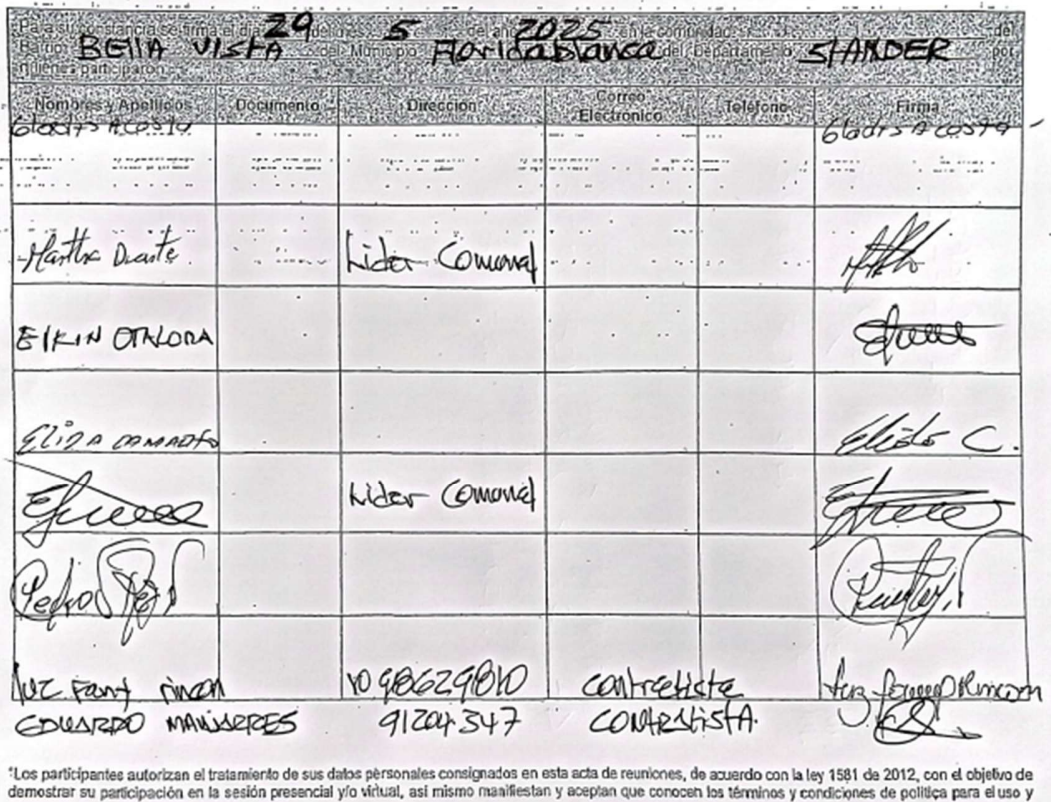 Para su constancia se firma el día 29 del mes 5 del año 2025 en la comunidad del
Barrio BEllA VISTA del Municipio Floridablanca del Departamento STANDER por
quienes participaron
Nombres y Apellidos Documento Dirección Correo Electronico Teléfono Firma
Gladys Acosta Gladys Acosta
Martha Duarte Lider Comunal
ElKIN OTALORA
Elida C.
Lider Comunal
Pedro
Luz Fany rincon 1098629810 contratista Luz Rincon
EDUARDO MANJARRES 91204347 CONTRATISTA
*Los participantes autorizan el tratamiento de sus datos personales consignados en esta acta de reuniones, de acuerdo con la ley 1581 de 2012, con el objetivo de
demostrar su participación en la sesión presencial y/o virtual, así mismo manifiestan y aceptan que conocen los términos y condiciones de política para el uso y